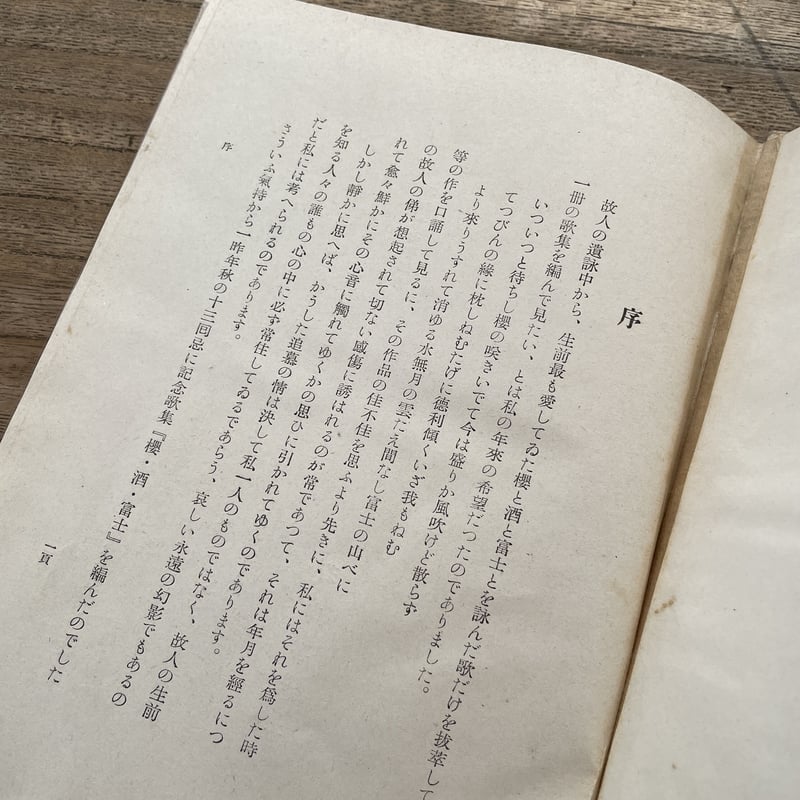 序
故人の遺詠中から、生前最も愛してゐた櫻と酒と富士とを詠んだ歌だけを拔萃して
一册の歌集を編んで見たい、とは私の年來の希望だつたのでありました。
いついつと待ちし櫻の咲きいでて今は盛りか風吹けど散らず
てつびんの緣に枕しねむたげに德利傾くいざ我もねむ
より來りうすれて消ゆる水無月の雲たえ間なし富士の山べに
等の作を口誦して見るに、その作品の佳不佳を思ふより先きに、私にはそれを爲した時
の故人の俤が想起されて切ない感傷に誘はれるのが常であつて、それは年月を經るにつ
れて愈々鮮かにその心音に觸れてゆくかの思ひに引かれてゆくのであります。
しかし靜かに思へば、かうした追慕の情は決して私一人のものではなく、故人の生前
を知る人々の誰もの心の中に必ず常住してゐるであらう、哀しい永遠の幻影でもあるの
だと私には考へられるのであります。
さういふ氣持から一昨年秋の十三囘忌に記念歌集『櫻・酒・富士』を編んだのでした
序
一頁